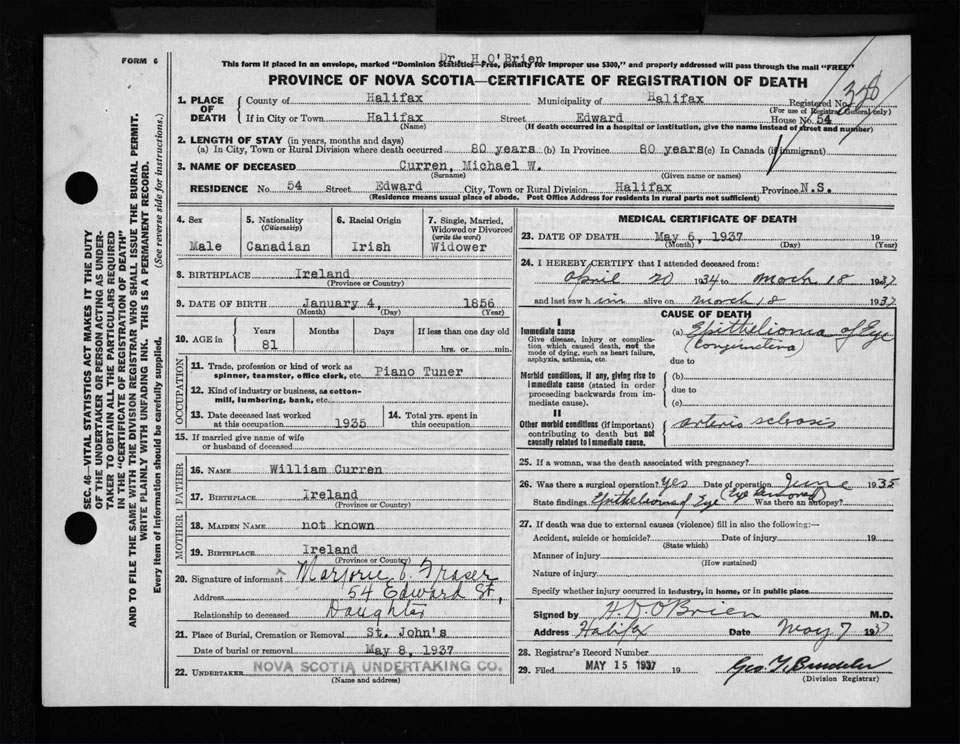 FORM 6
Dr. H O'Brien
This form if placed in an envelope, marked "Dominion Statistics—Free, penalty for improper use $300," and properly addressed will pass through the mail "FREE"
PROVINCE OF NOVA SCOTIA—CERTIFICATE OF REGISTRATION OF DEATH
SEC. 46—VITAL STATISTICS ACT MAKES IT THE DUTY
OF THE UNDERTAKER OR PERSON ACTING AS UNDER-
TAKER TO OBTAIN ALL THE PARTICULARS REQUIRED
IN THE "CERTIFICATE OF REGISTRATION OF DEATH"
AND TO FILE THE SAME WITH THE DIVISION REGISTRAR WHO SHALL ISSUE THE BURIAL PERMIT.
WRITE PLAINLY WITH UNFADING INK. THIS IS A PERMANENT RECORD.
Every item of information should be carefully supplied. (See reverse side for instructions.)
1. PLACE OF DEATH
County of Halifax Municipality of Halifax Registered No.
(For use of Registrar General only)
If in City or Town Halifax Street Edward House No. 54
(Name) (If death occurred in a hospital or institution, give the name instead of street and number)
2. LENGTH OF STAY (in years, months and days)
(a) In City, Town or Rural Division where death occurred 80 years (b) In Province 80 years (c) In Canada (if immigrant)
3. NAME OF DECEASED Curren, Michael W.
(Surname) (Given name or names)
RESIDENCE No. 54 Street Edward City, Town or Rural Division Halifax Province N.S.
(Residence means usual place of abode. Post Office Address for residents in rural parts not sufficient)
4. Sex 5. Nationality (Citizenship) 6. Racial Origin 7. Single, Married, Widowed or Divorced (write the word)
Male Canadian Irish Widower
8. BIRTHPLACE Ireland
(Province or Country)
9. DATE OF BIRTH January 4, 1856
(Month) (Day) (Year)
10. AGE in Years Months Days If less than one day old
81 hrs. or min.
OCCUPATION
11. Trade, profession or kind of work as
spinner, teamster, office clerk, etc. Piano Tuner
12. Kind of industry or business, as cotton-
mill, lumbering, bank, etc.
13. Date deceased last worked
at this occupation 1935
14. Total yrs. spent in
this occupation
15. If married give name of wife
or husband of deceased
FATHER
16. NAME William Curren
17. BIRTHPLACE Ireland
(Province or Country)
MOTHER
18. MAIDEN NAME not known
19. BIRTHPLACE Ireland
(Province or Country)
20. Signature of informant Marjorie C. Fraser
Address 54 Edward St,
Relationship to deceased Daughter
21. Place of Burial, Cremation or Removal St. John's
Date of burial or removal May 8, 1937
22. UNDERTAKER NOVA SCOTIA UNDERTAKING CO.
(Name and address)
MEDICAL CERTIFICATE OF DEATH
23. DATE OF DEATH May 6, 1937 19
(Month) (Day) (Year)
24. I HEREBY CERTIFY that I attended deceased from:
April 20 1934 to March 18 1937
and last saw him alive on March 18 1937
CAUSE OF DEATH
I
Immediate cause
Give disease, injury or complica-
tion which caused death, not the
mode of dying, such as heart failure,
asphyxia, asthenia, etc.
(a) Epithelioma of Eye
(Conjunctiva)
due to
Morbid conditions, if any, giving rise to
immediate cause (stated in order
proceeding backwards from im-
mediate cause).
(b)
due to
(c)
II
Other morbid conditions (if important)
contributing to death but not
causally related to immediate cause.
arterio sclerosis
25. If a woman, was the death associated with pregnancy?
26. Was there surgical operation? yes Date of operation June 1935
State findings Epithelioma of Eye (Eye Removed) Was there an autopsy?
27. If death was due to external causes (violence) fill in also the following:—
Accident, suicide or homicide? Date of injury 19
(State which)
Manner of injury
(How sustained)
Nature of injury
Specify whether injury occurred in industry, in home, or in public place
Signed by H. D. O'Brien M.D.
Address Halifax Date May 7 1937
28. Registrar's Record Number
29. Filed MAY 15 1937 19
(Division Registrar)